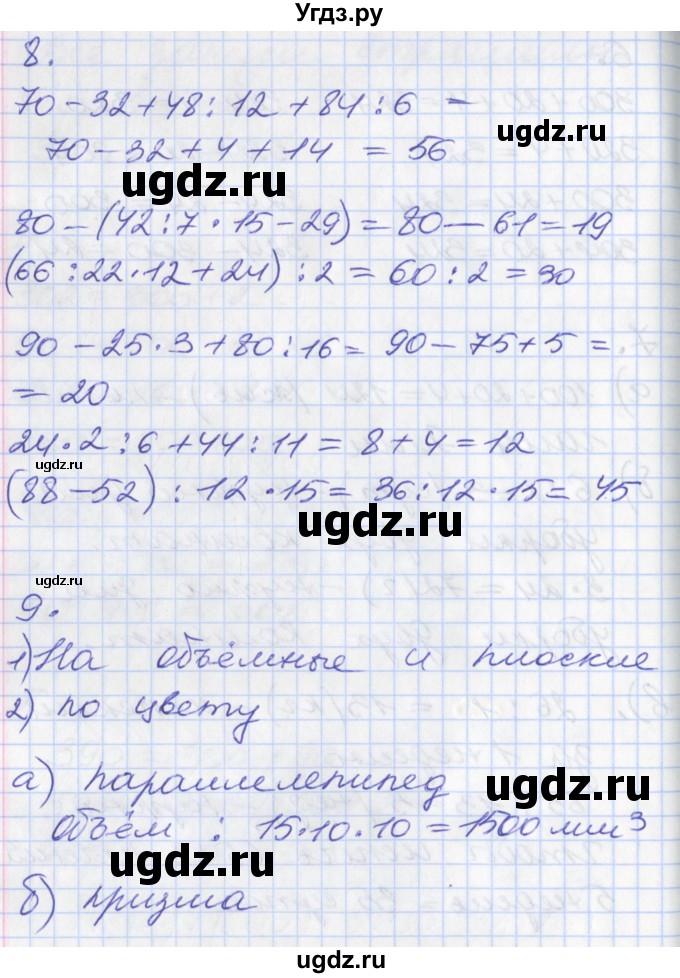 Угдз.ру
8.
70 - 32 + 48 : 12 + 84 : 6 -
70 - 32 + 4 + 14 = 56
ugdz.ru
ugdz.ru
80 - (42 : 7 · 15 - 29) = 80 - 61 = 19
(66 : 22 · 12 + 24) : 2 = 60 : 2 = 30
90 - 25 · 3 + 80 : 16 = 90 - 75 + 5 =
= 20
24 · 2 : 6 + 44 : 11 = 8 + 4 = 12
ugdz.ru
(88 - 52) : 12 · 15 = 36 : 12 · 15 = 45
ugdz.ru
ugdz.ru
9.
1) На объёмные и плоские
2) по цвету
а) параллелепипед
ugdz.ru
объём : 15·10·10 = 1500 мм³
ugdz.ru
б) призма
ugdz.ru